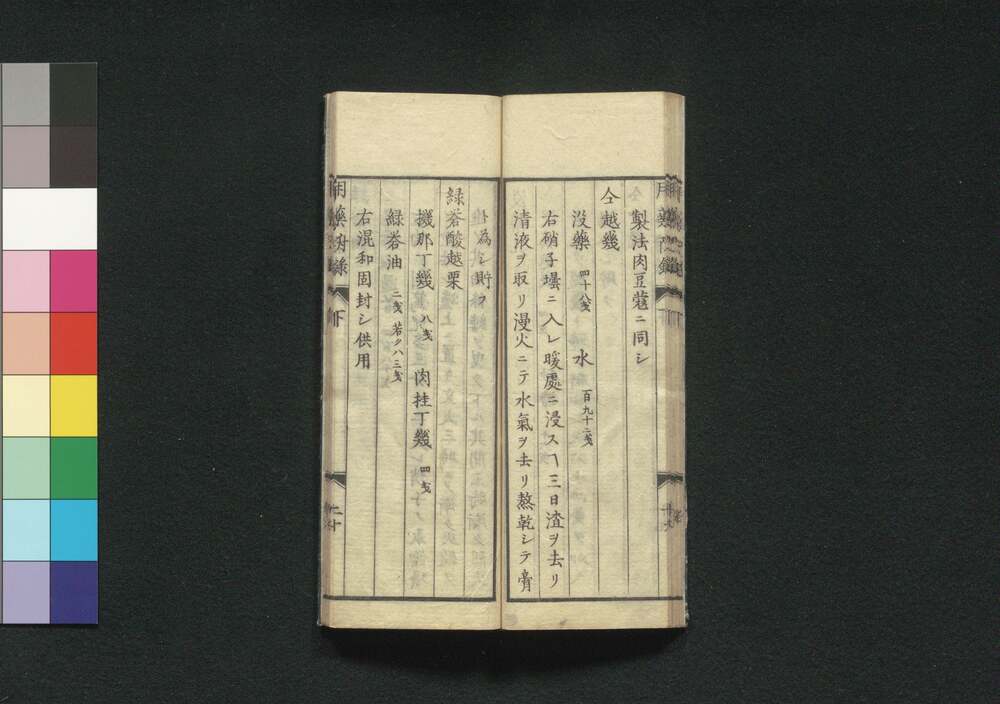 製法肉豆蔲ニ同シ
仝越幾
没藥 四十八戔 水 百九十二戔
右硝子壜ニ入レ暖處ニ浸スヿ三日渣ヲ去リ
清液ヲ取リ漫火ニテ水氣ヲ去リ熬乾シテ膏
為シ貯フ
緑礬酸越栗
機那丁幾 八戔 肉桂丁幾 四戔
緑礬油 二戔 若クハ三戔
右混和固封シ供用
下
二十